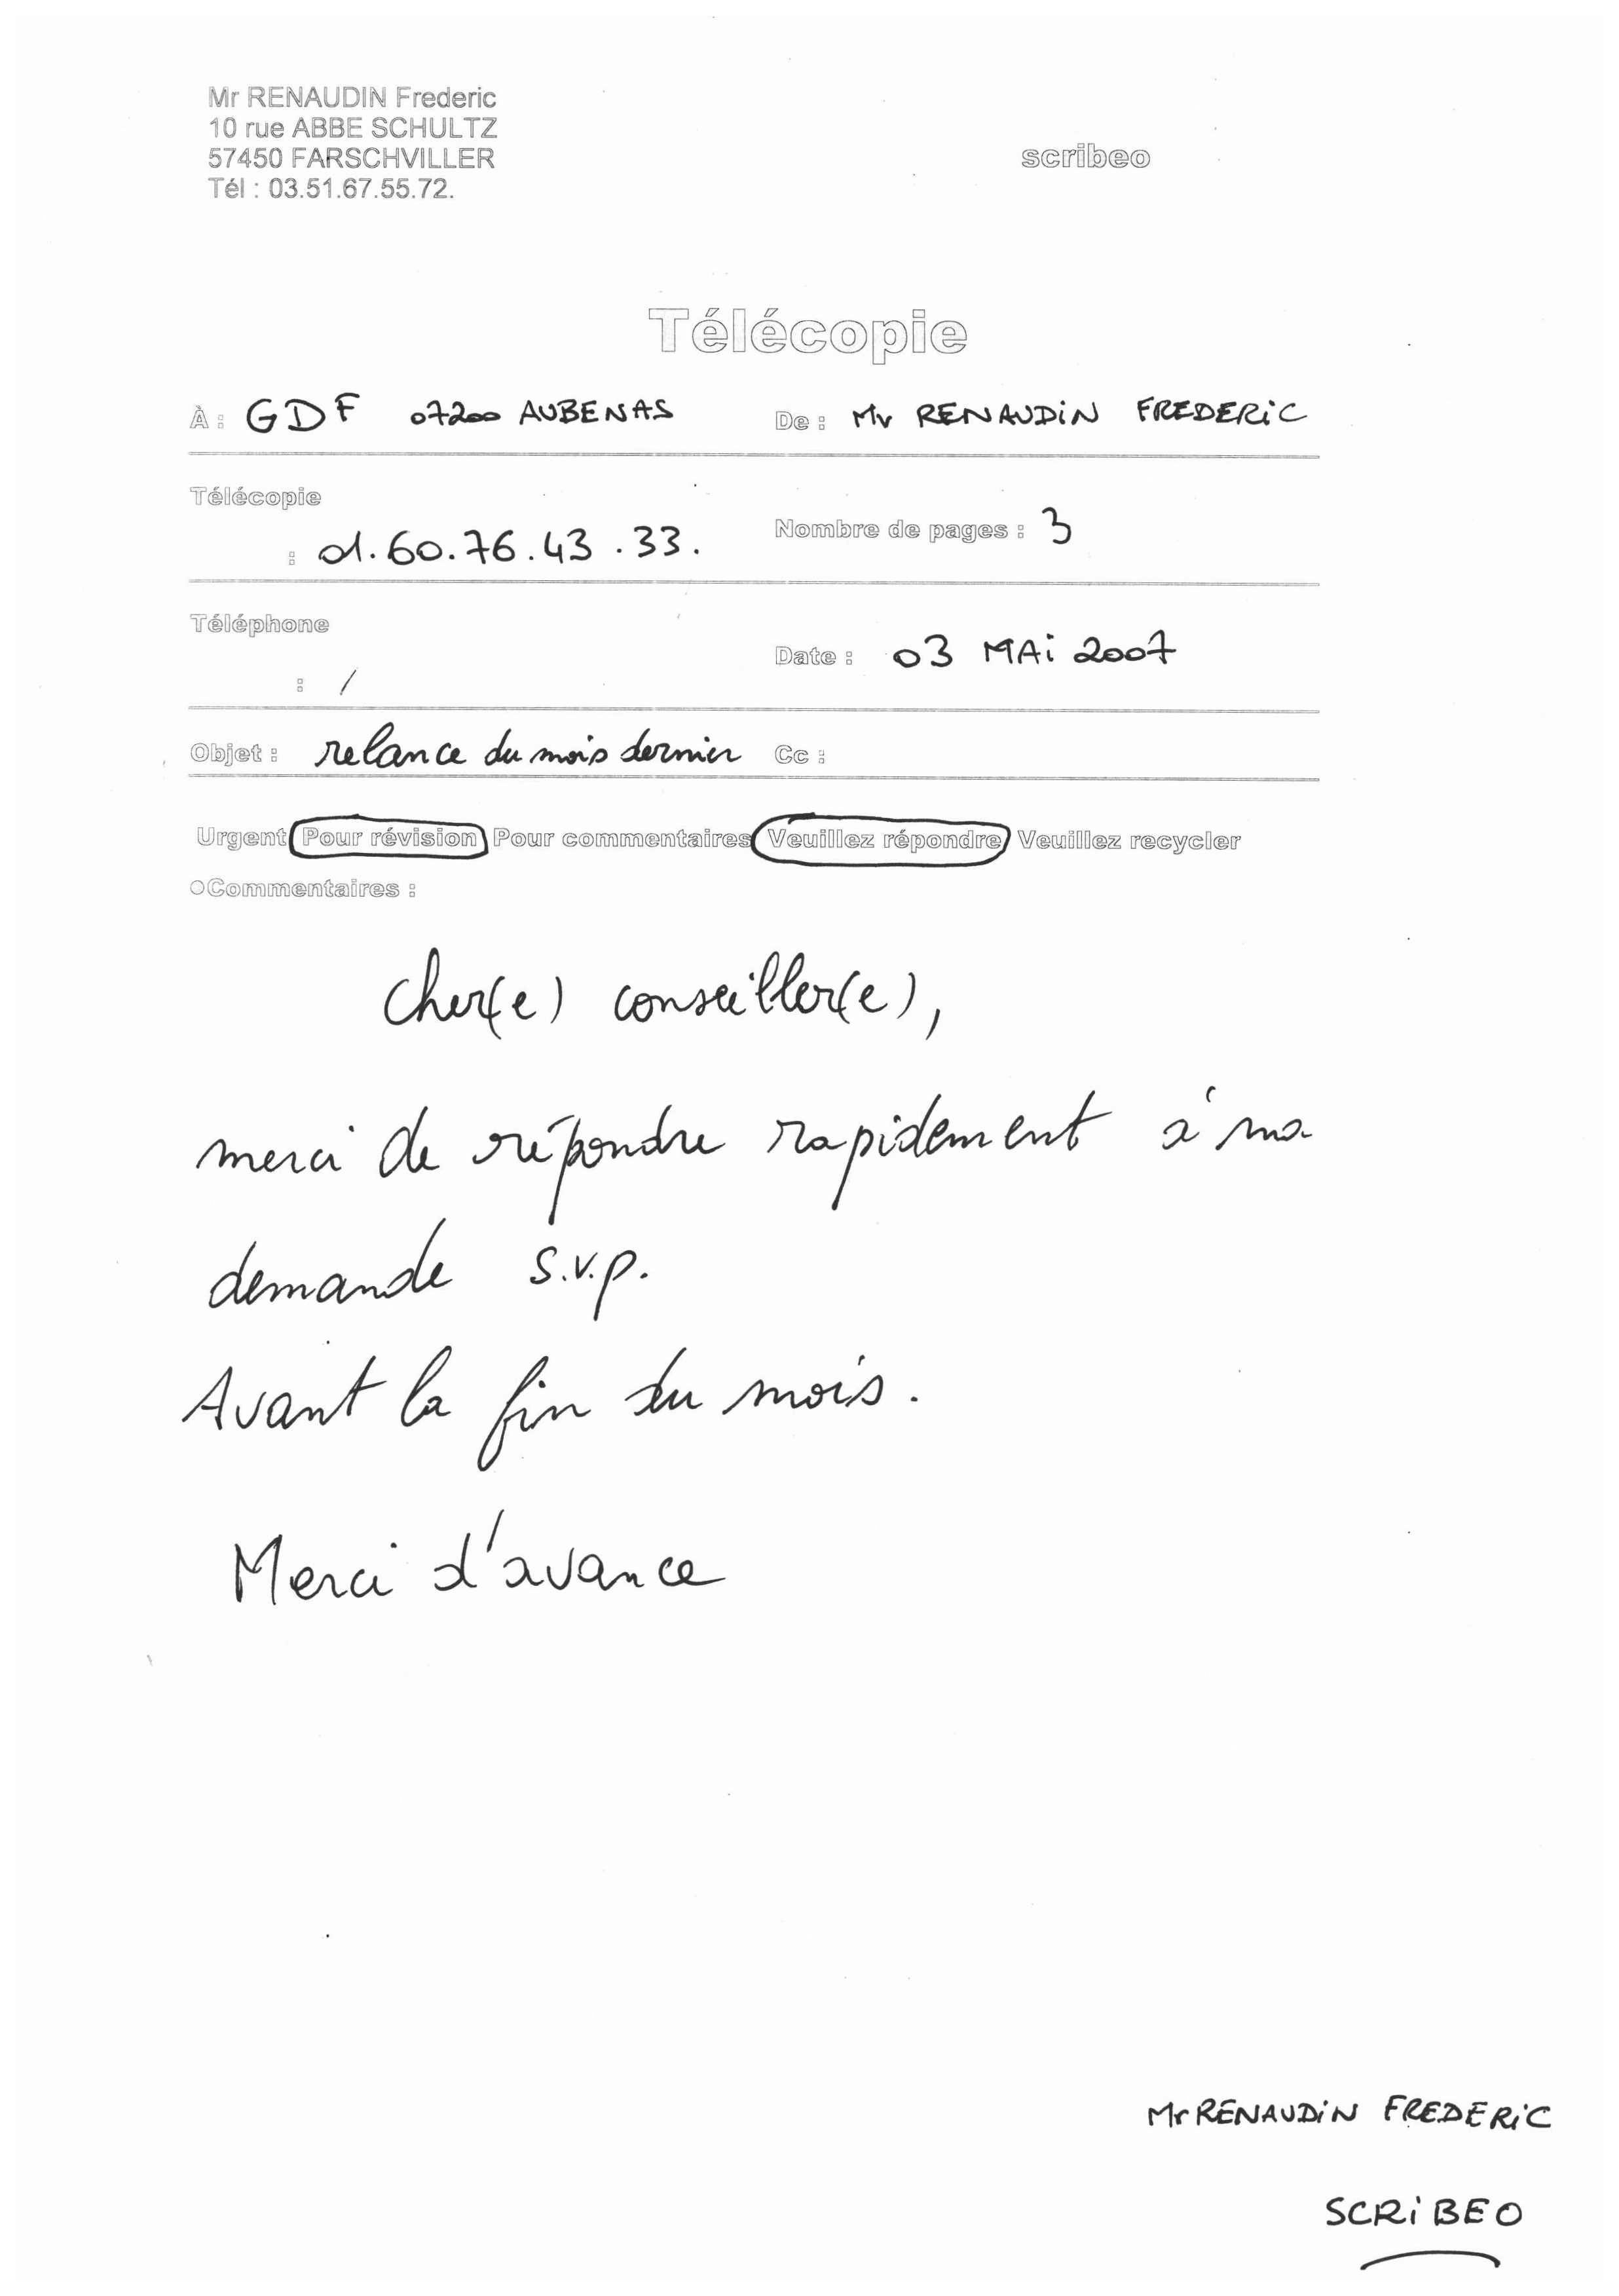 Mr RENAUDIN Frederic
10 rue ABBE SCHULTZ
57450 FARSCHVILLER
Tél : 03.51.67.55.72.
scribeo
Télécopie
À : GDF 07200 AUBENAS De : Mr RENAUDIN FREDERIC
Télécopie
: 01.60.76.43.33. Nombre de pages : 3
Téléphone
: / Date : 03 MAI 2007
Objet : relance du mois dernier Cc :
Urgent Pour révision Pour commentaires Veuillez répondre Veuillez recycler
○Commentaires :
Cher(e) conseiller(e),
merci de répondre rapidement à ma
demande s.v.p.
Avant la fin du mois.
Merci d'avance
Mr RENAUDIN FREDERIC
SCRIBEO